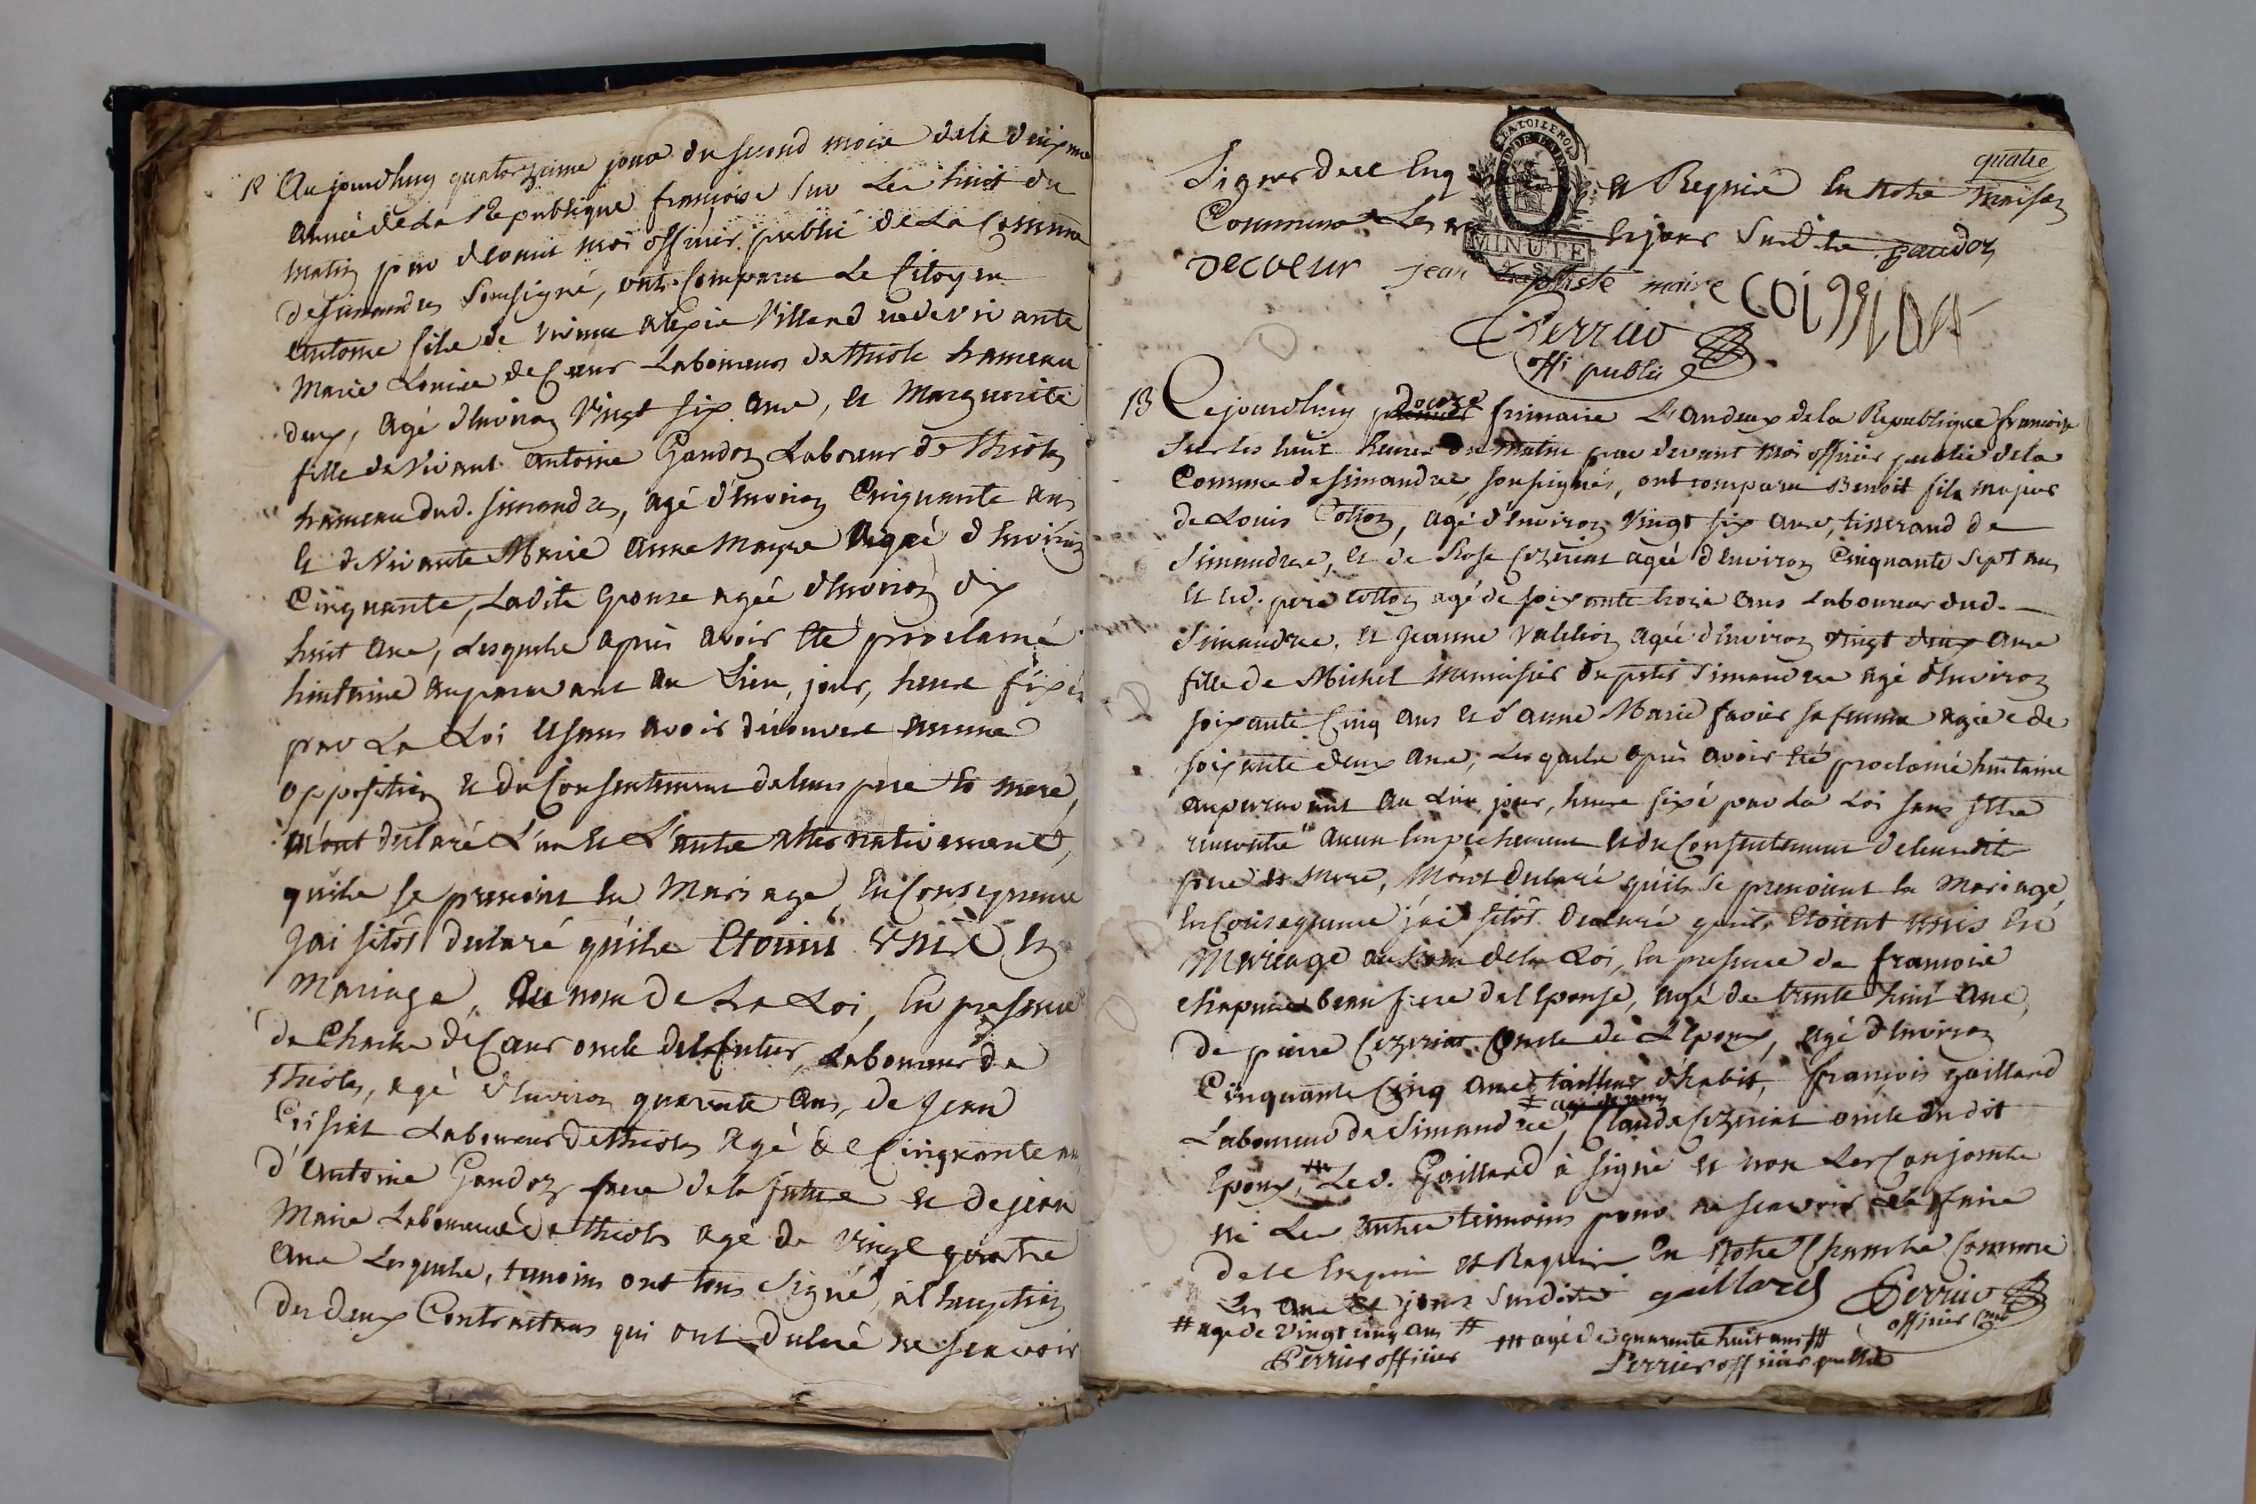 12 Aujourdhuy quatorzieme jour du second mois dela deuxieme
année de La Republique françoise sur Les huit du
matin par devant moi officier public de La Commune
de Simandres soussigné, ont comparu Le Citoyen
antoine fils de vivant alexis Villard et de vivante
Marie Louise de Cœur Laboureurs de thiole hameau
deux, agé d'Environ Vingt six ans, et Marguerite
fille de Vivant antoine Gandoz Laboureur de thiole
hameau dud. Simandres, agé d'Environ Cinquante ans
Et de Vivante Marie anne Mayre agée d'Environ
Cinquante, Ladite Epouse agée d'Environ dix
huit ans, Lesquels après avoir Eté proclamé
huitaine auparavant au Lieu, jour, heure fixés
par La Loi Et sans avoir découvert aucune
opposition et du Consentement de leurs pere Et mere,
m'ont declaré L'un Et L'autre alternativement,
quils se prenoint En Mariage, En Consequence
Jai sitôt declaré quils Etoint Unis En
Mariage, Au nom de La Loi, En presence
de Charles de Cœur oncle de futur, Laboureur de
thiole, agé d'Environ quarante Ans, de Jean
Laboureur de thiole agé de Cinquante ans
d'Antoine Gandoz frere de la future et de jean
Maire Laboureur de thiole agé de vingt quatre
ans Lesquels, temoins ont tous signé, a l'Exception
des deux Contractans qui ont declaré ne scavoir
quatre
Signer de ce Enq et Requis En Notre Maison
Commune Les an Et jour Susdits gaudoz
decoeur jean baptiste maire
Perrier
offi public
13 Cejourdhuy douze frimaire L'an deux de la Republique françoise
sur les huit heures du matin par devant moi officier public dela
Commune de Simandre, soussignés, ont comparu Benoit fils majeur
de Louis Cotton, agé d'Environ Vingt six ans, tisserand de
Simandre, et de Rose Cezeriat agée d'Environ Cinquante sept ans
Et led. pere cotton agé de soixante trois ans Laboureur dud.
Simandre, et Jeanne agée d'Environ vingt deux ans
fille de Michel Menuisier du petit Simandre agé d'Environ
soixante Cinq ans et d'anne Marie favier sa femme agée de
soixante deux ans, Lesquels après avoir Eté proclamé huitaine
auparavant au Lieu jour, heure fixé par La Loi sans s'Etre
rencontré aucun Empechement et du Consentement de leursdits
pere et mere, M'ont declaré qu'ils se prenoient En Mariage,
En Consequence j'ai sitôt declaré quils Etoient unis En
Mariage au nom de la Loi, En presence de françois
Chapuis beau frere de l'Epouse, agé de trente huit ans,
de pierre Cezeriat oncle de L'Epoux, agé d'Environ
Cinquante Cinq ans tailleur d'habit, françois gaillard
Laboureur de Simandre, ⌗ Claude Cezeriat oncle dudit
Epoux, ⌗ Led. Gaillard à signé et non Les Conjoints
ni Les autres temoins pour ne scavoir Le faire
de ce Enquis et Requis En Notre Chambre Commune
Les an et jour susdits gaillard Perrier
officier pub
# agé de vingt cinq ans # ## agé de quarante huit ans ##
Perrier officier Perrier officier public